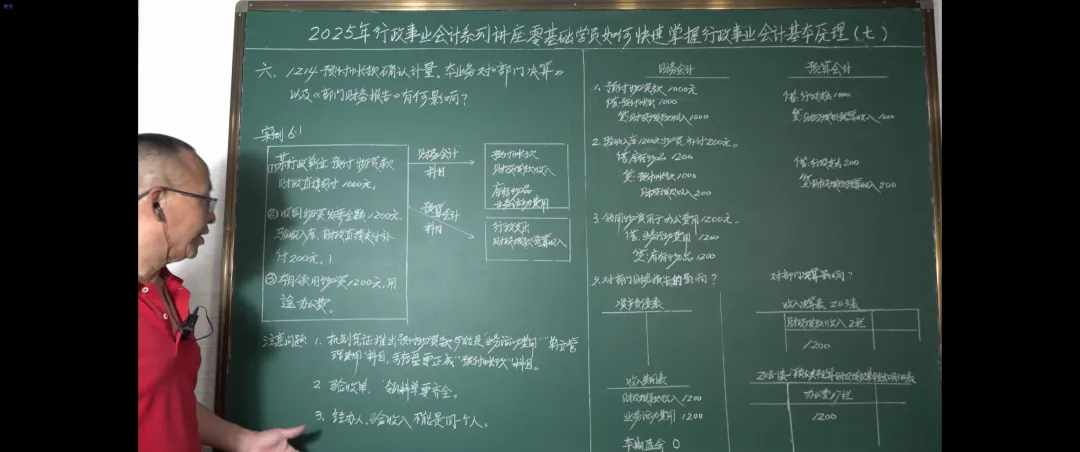 2025年行政事业会计系列讲座零基础学员如何快速掌握行政事业会计基本原理(七)
六、1214预付账款确认计量。本业务对《部门决算》
以及《部门财务报告》有何影响?
案例6.1
①某行政单位预付物资款
财政直接支付1000元。
②收到物资发票金额1200元,
验收入库,财政直接支付补
付200元。)
③本月领用物资1200元,用
途办公费。
财务会计
科目
预算会计
科目
预付账款
财政拨款收入
库存物品
业务活动费用
行政支出
财政拨款预算收入
注意问题:1.
科目,
"预付账款"科目。
2 验收单、领料单要齐全。
3. 经办人、验收人不能是同一个人。
财务会计
1、预付物资款1000元
借:预付账款1000
贷:财政拨款收入1000
2.验收入库1200元物资,补付200元。
借:库存物品 1200
贷:预付账款1000
财政拨款收入200
3、领用物资用于办公费用1200元。
借:业务活动费用 1200
贷:库存物品 1200
4.对部门财务报告的影响?
资产负债表
收入费用表
财政拨款收入1200
业务活动费用 1200
本期盈余 0
预算会计
借:行政支出1000
贷:财政拨款预算收入1000
借:行政支出 200
贷:财政拨款预算收入200
对部门决算影响?
收入决算表 Z03表
财政拨款收入 2栏
1200
办公费17栏
1200